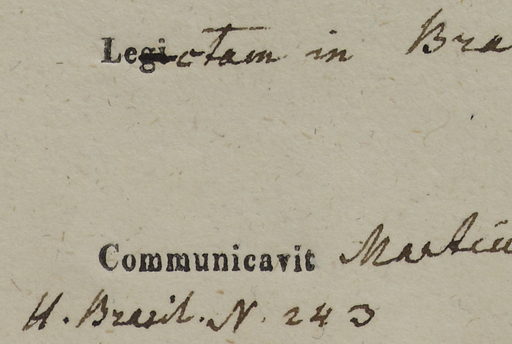 Legi ctam in Bra
Communicavit Martiu
H. Brasil. N. 243